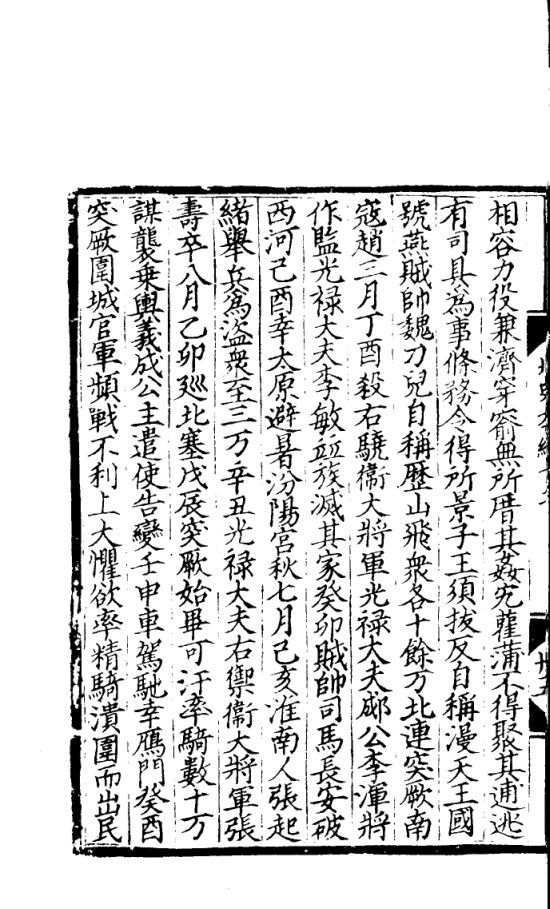 相容力役兼濟穿窬無所厝其姦宄雚蒲不得聚其逋逃
有司具為事條務令得所景子王須拔反自稱漫天王國
號燕賊帥魏刀兒自稱歷山飛衆各十餘万北連突厥南
寇趙三月丁酉殺右驍衞大將軍光禄大夫郕公李渾將
作監光禄大夫李敏並族滅其家癸卯賊帥司馬長安破
西河己酉幸太原避暑汾陽宮秋七月己亥淮南人張起
緒舉兵為盗衆至三万辛丑光禄大夫右禦衞大將軍張
壽卒八月乙卯廵北塞戊辰突厥始畢可汗率騎數十万
謀襲乗輿義成公主遣使告變壬申車駕馳幸鴈門癸酉
突厥圍城官軍頻戰不利上大懼欲率精騎潰圍而出民